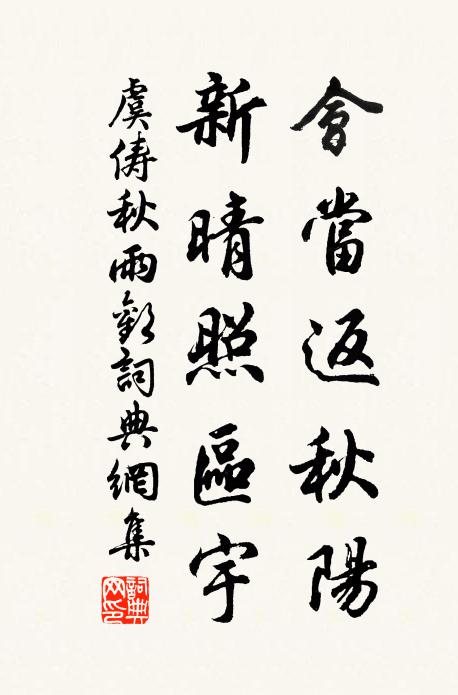 會當返秋陽
新晴照區宇
虞儔秋雨歎詞典網集
詞典
网印